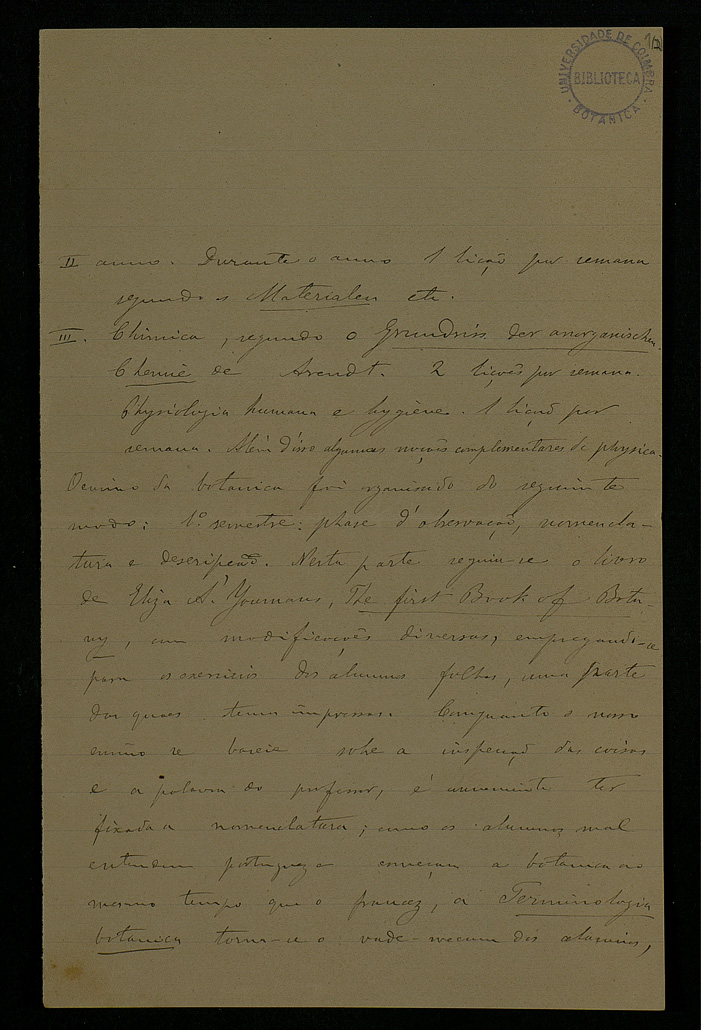 UNIVERSIDADE DE COIMBRA
BIBLIOTECA
BOTANICA
II anno. Durante o anno 1 lição por semana
segundo os Materialen etc.
III. Chimica, segundo o Grundriss der anorganischen
Chemie de Arendt. 2 lições por semana.
Physiologia humana e hygiene. 1 lição por
semana. Alem d'isso algumas noções complementares de physica.
O ensino da botanica foi organisado do seguinte
modo: 1º semestre: phase d'observação, nomencla-
tura e descripção. Nesta parte seguiu-se o livro
de Eliza A. Youmans, The first Book of Bota-
ny, com modificações diversas, empregando-se
para os exercicios dos alumnos folhas, uma parte
das quaes temos impressas. Comquanto o nosso
ensino se baseie sobre a inspecção das coisas
e a palavra do professor, é conveniente ter
fixada a nomenclatura; como os alumnos mal
entendem portuguez e começam a botanica ao
mesmo tempo que o francez, a Terminologia
botanica torna-se o vade-mecum dos alumnos,